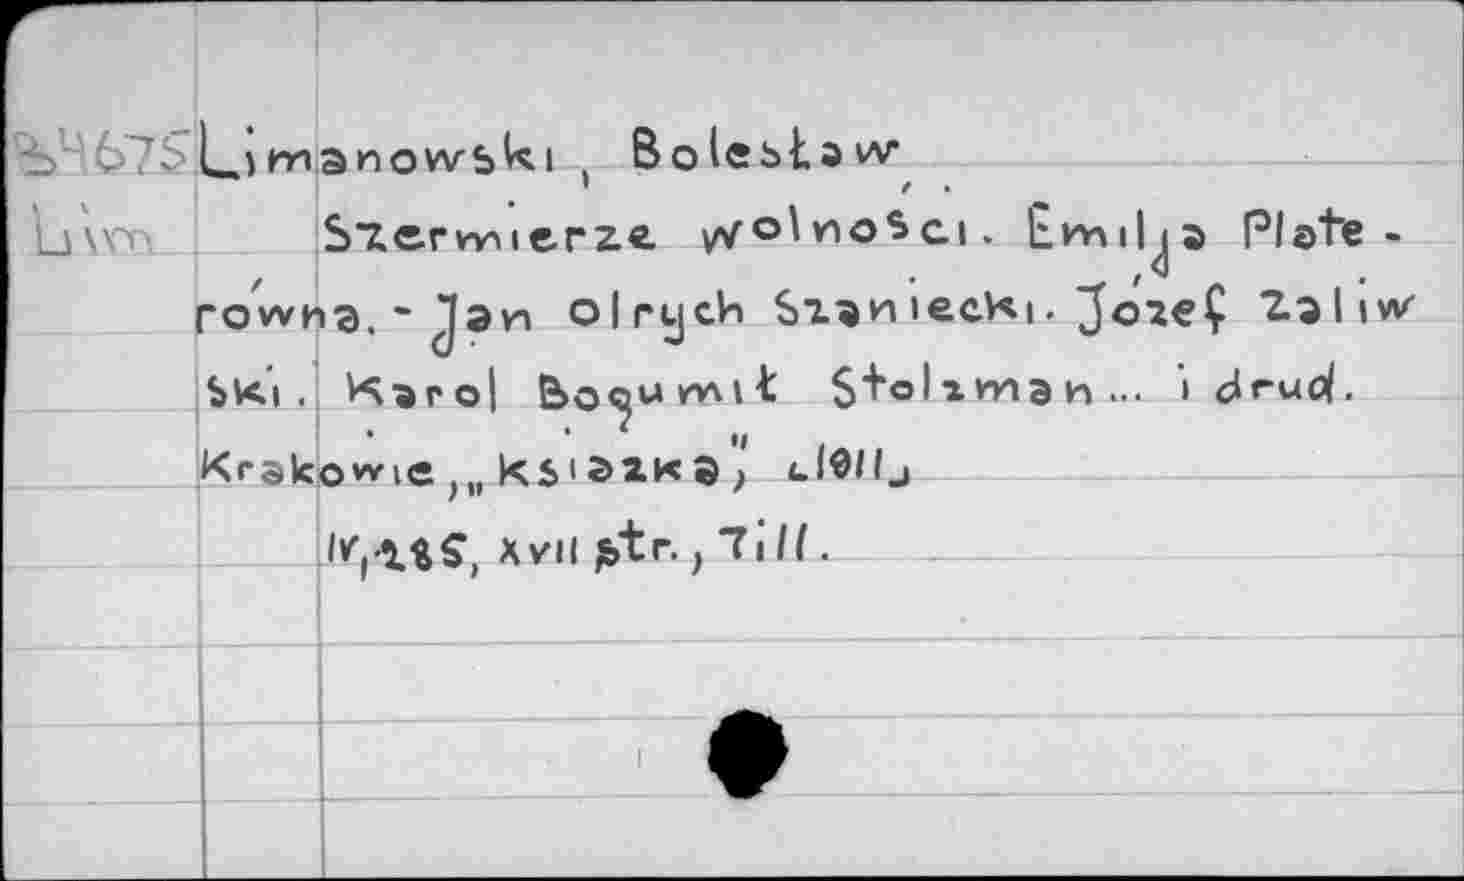 34675 Limanowski, Bolesław
Lim Szermierze wolności. Emilja Plate-
równa. - Jan Olrych Szaniecki. Józef Zaliw
ski. Karol Bogumił Stolzman... i drugi.
Krakowie, „Książka", [1911]
IV, 285, XVII str., Till.